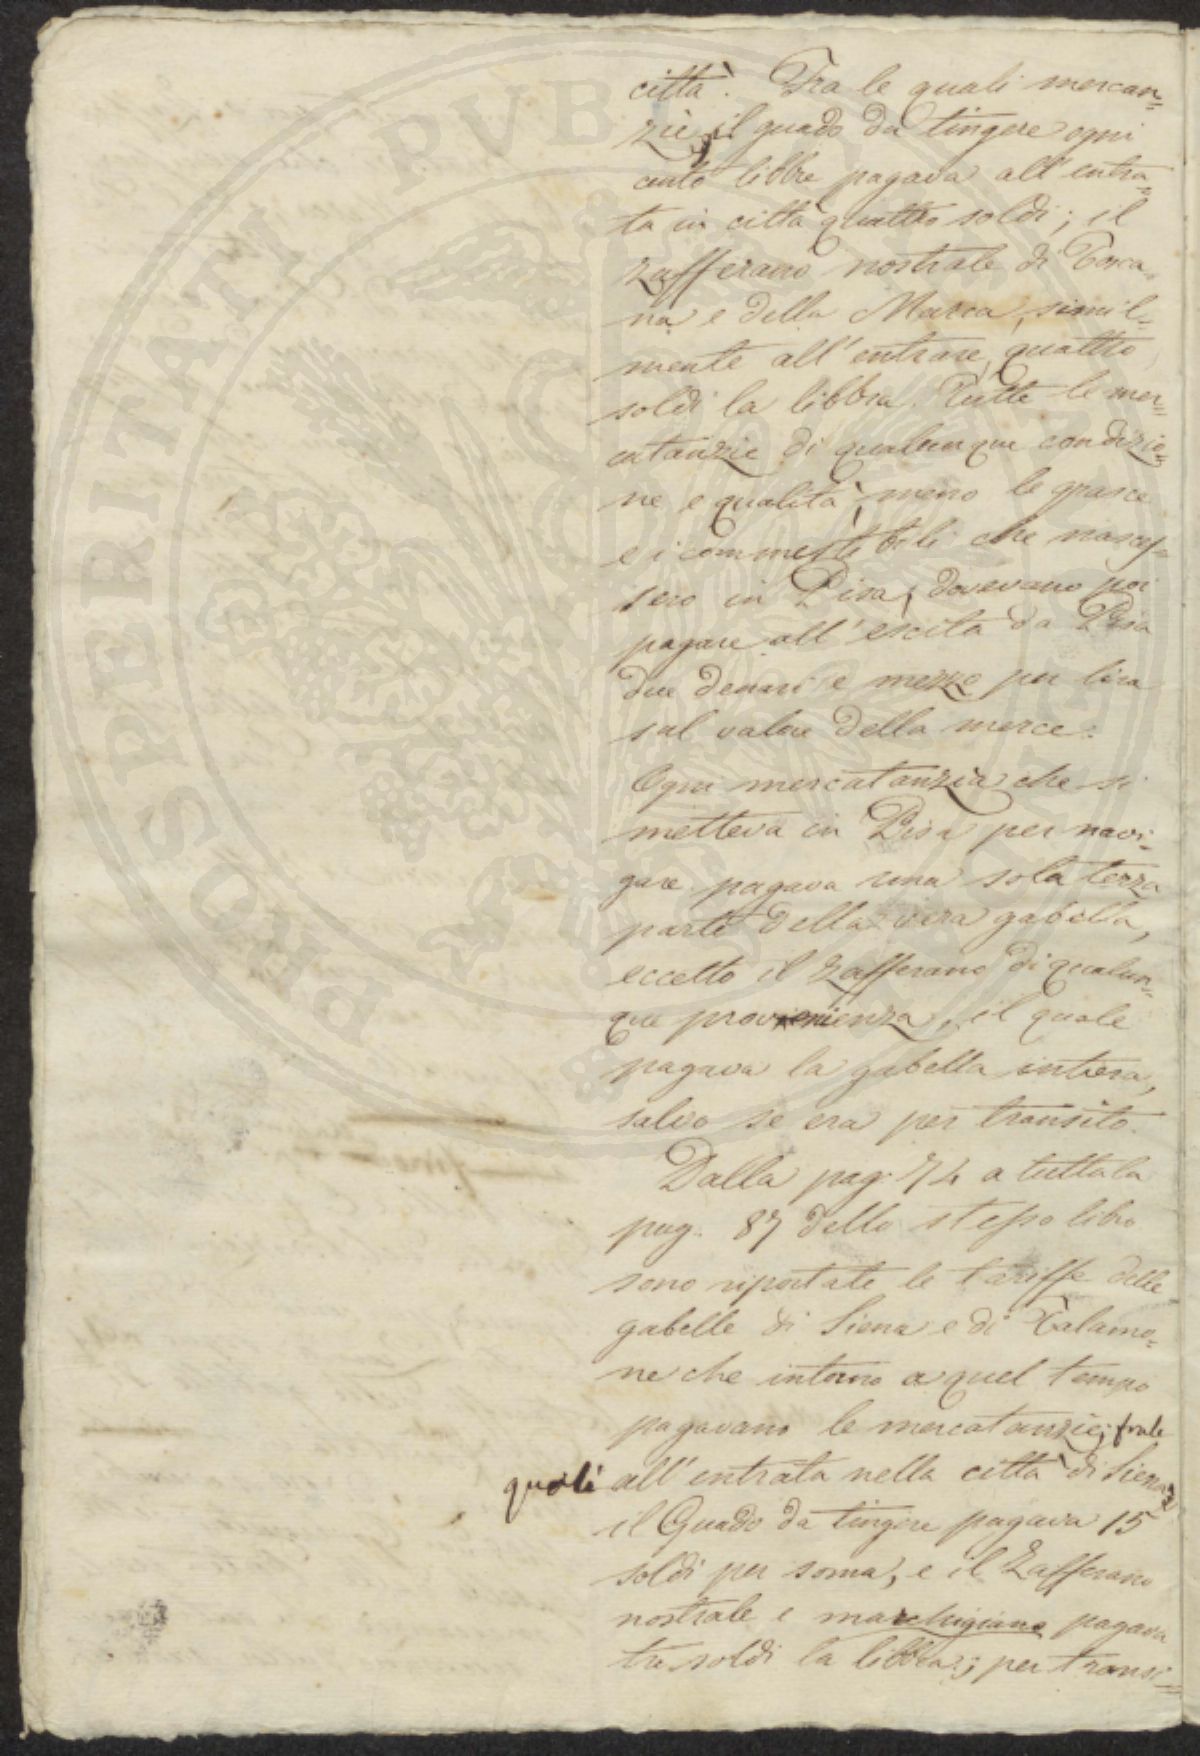 città. Fra le quali mercan=
zie, il guado da tingere ogni
cento libbre pagava all'entra=
ta in città quattro soldi; il
zafferano nostrale di Tosca=
na e della Marca, simil=
mente all'entrare, quattro
soldi la libbra. Tutte le mer=
catanzie di qualunque condizio=
ne e qualità, meno le grasce
e i commestibili che nasces=
sero in Pisa, dovevano poi
pagare all'escita da Pisa
due denari e mezzo per lira
sul valore della merce.
Ogni mercatanzia che si
metteva in Pisa per navi=
gare pagava una sola terza
parte della vera gabella,
eccetto il Zafferano di qualun=
que provenienza, il quale
pagava la gabella intiera,
salvo se era per transito.
Dalla pag. 74 a tutta la
pag. 87 dello stesso libro
sono riportate le tariffe delle
gabelle di Siena e di Talamo=
ne che intorno a quel tempo
pagavano le mercatanzie; fra le
quali all'entrata nella città di Siena
il Guado da tingere pagava 15
soldi per soma, e il Zafferano
nostrale e marchigiano pagava
tre soldi la libbra; per transi=
PROSPERITATI PVBLICAE